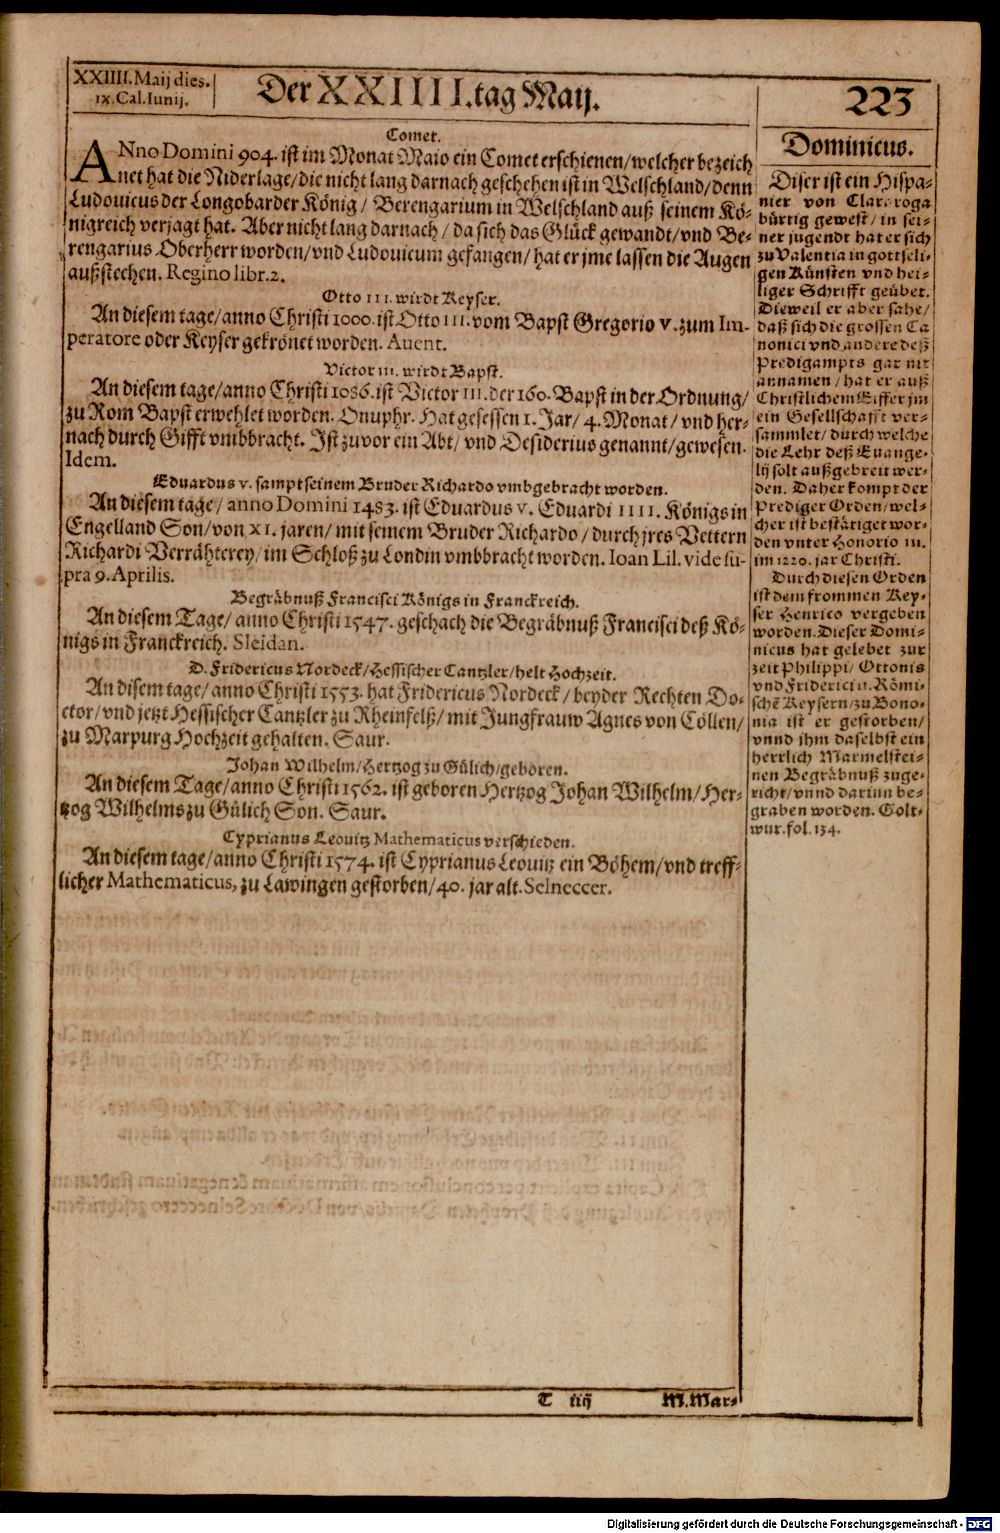 XXIIII. Maij dies.
ix. Cal. Iunij.
Der XXIIII. tag Maij.
223
Comet.
ANno Domini 904. ist im Monat Maio ein Comet erschienen/welcher bezeich
net hat die Niderlage/die nicht lang darnach geschehen ist in Welschland/denn
Ludouicus der Longobarder König/ Berengarium in Welschland auß seinem Kö-
nigreich verjagt hat. Aber nicht lang darnach/ da sich das Glück gewandt/vnd Be-
rengarius Oberherr worden/vnd Ludouicum gefangen/hat er jme lassen die Augen
außstechen. Regino libr.2.
Otto III. wirdt Keyser.
An diesem tage/anno Christi 1000. ist Otto III. vom Bapst Gregorio V. zum Im-
peratore oder Keyser gekrönet worden. Auent.
Victor III. wirdt Bapst.
An diesem tage/anno Christi 1086. ist Victor III. der 160. Bapst in der Ordnung/
zu Rom Bapst erwehlet worden. Onuphr. Hat gesessen 1. Jar/ 4. Monat/ vnd her-
nach durch Gifft vmbbracht. Ist zuvor ein Abt/ vnd Desiderius genannt/gewesen.
Idem.
Eduardus v. sampt seinem Bruder Richardo vmbgebracht worden.
An diesem tage/ anno Domini 1483. ist Eduardus v. Eduardi IIII. Königs in
Engelland Son/von XI. jaren/ mit seinem Bruder Richardo/ durch jres Vettern
Richardi Verrähterey/ im Schloß zu Londin vmbbracht worden. Ioan Lil. vide su-
pra 9. Aprilis.
Begräbnuß Francisci Königs in Franckreich.
An diesem Tage/ anno Christi 1547. geschach die Begräbnuß Francisci deß Kö-
nigs in Franckreich. Sleidan.
D. Fridericus Nordeck/Hessischer Cantzler/helt Hochzeit.
An disem tage/ anno Christi 1553. hat Fridericus Nordeck/ beyder Rechten Do-
ctor/vnd jetzt Hessischer Cantzler zu Rheinfelß/ mit Jungfrauw Agnes von Cöllen/
zu Marpurg Hochzeit gehalten. Saur.
Johan Wilhelm/Hertzog zu Gülich/geboren.
An diesem Tage/anno Christi 1562. ist geboren Hertzog Johan Wilhelm/Her-
tzog Wilhelms zu Gülich Son. Saur.
Cyprianus Leouitz Mathematicus verschieden.
An diesem tage/anno Christi 1574. ist Cyprianus Leouitz ein Böhem/vnd treff-
licher Mathematicus, zu Lawingen gestorben/40. jar alt. Selneccer.
Dominicus.
Diser ist ein Hispa-
nier von
bürtig gewest/ in sei-
ner jugendt hat er sich
zu Valentia in gottseli-
gen Künsten vnd hei-
liger Schrifft geübet.
Dieweil er aber sahe/
daß sich die grossen Ca
nonici vnd andere deß
Predigampts gar nit
annamen/ hat er auß
Christlichem Eiffer jm
ein Gesellschafft ver-
sammlet/ durch welche
die Lehr deß Euange-
lij solt außgebreit wer-
den. Daher kompt der
Prediger Orden/wel-
cher ist bestätiget wor-
den vnter Honorio III.
im 1220. jar Christi.
Durch diesen Orden
ist dem frommen Key-
ser Henrico vergeben
worden. Dieser Domi-
nicus hat gelebet zur
zeit Philippi/ Ottonis
vnd Friderici II. Römi-
schē Keysern/zu Bono-
nia ist er gestorben/
vnnd jhm daselbst ein
herrlich Marmelstei-
nen Begräbnuß zuge-
richt/vnnd darinn be-
graben worden. Golt-
wur. fol. 134.
T iiij
M. Mar-
Digitalisierung gefördert durch die Deutsche Forschungsgemeinschaft - DFG